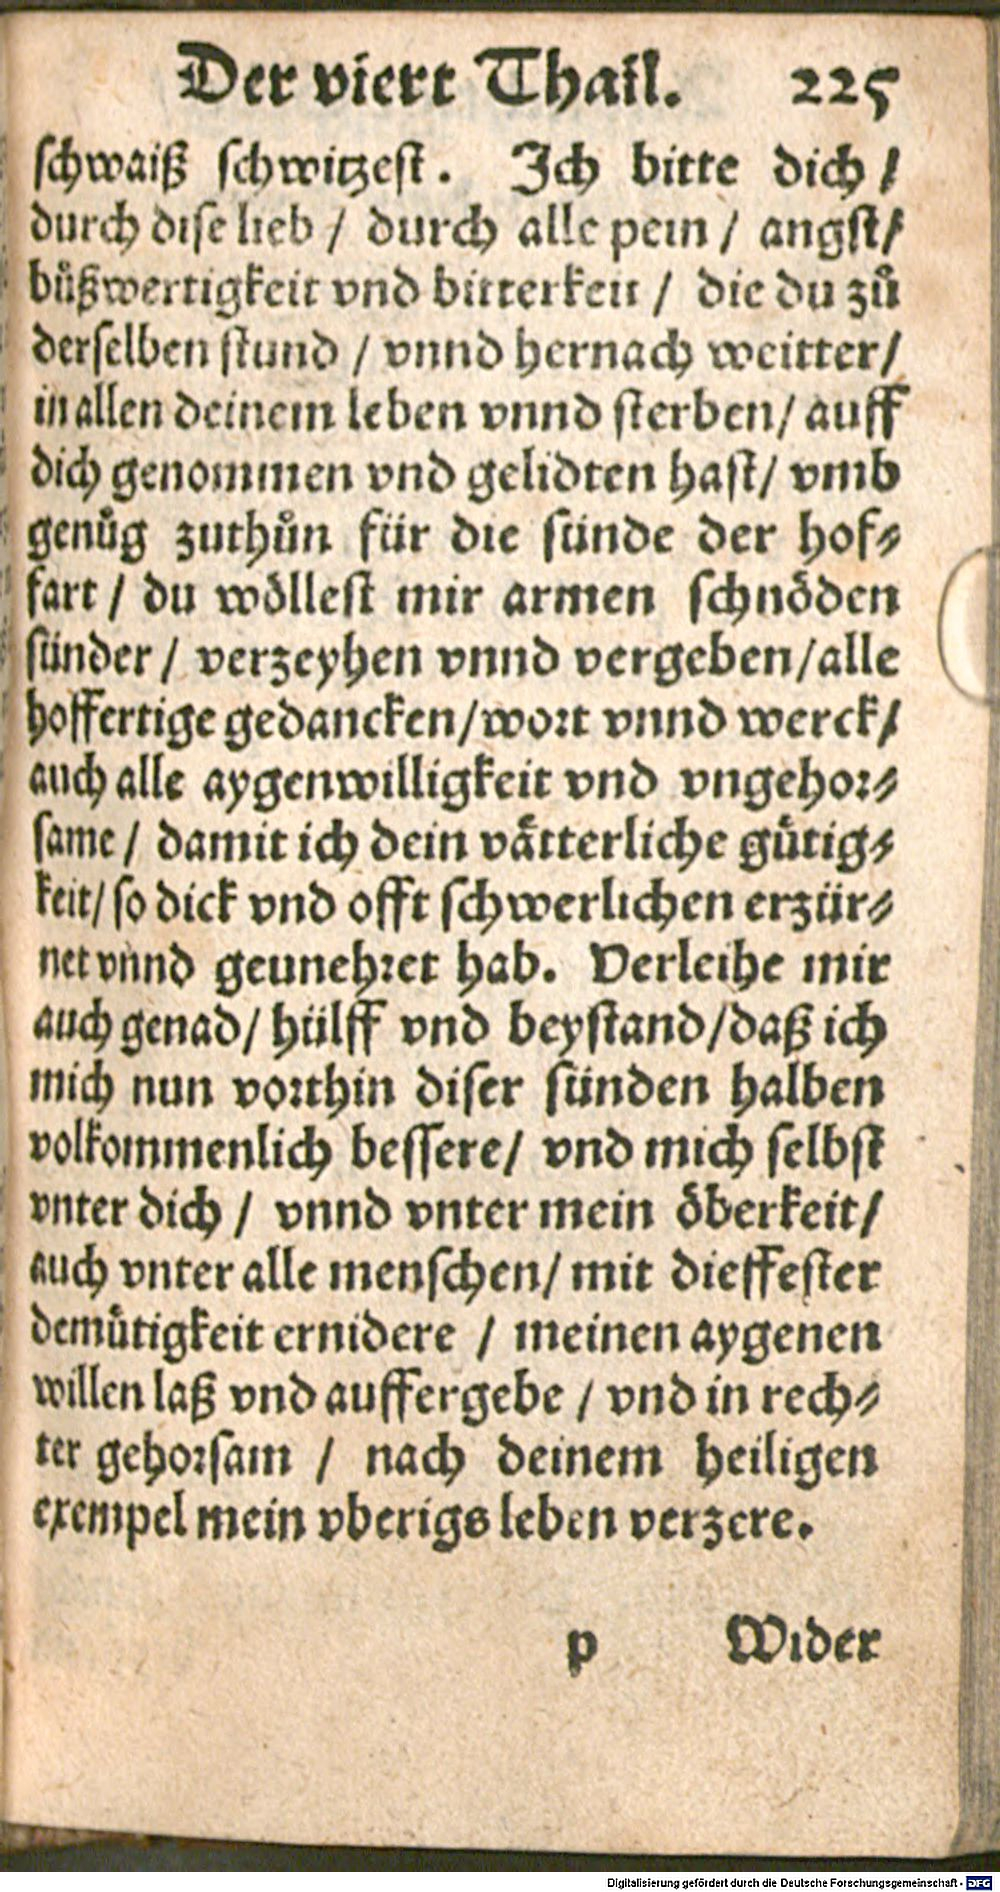 Der viert Thail. 225
schwaiß schwitzest. Ich bitte dich /
durch dise lieb / durch alle pein / angst /
bůßwertigkeit vnd bitterkeit / die du zů
derselben stund / vnnd hernach weitter /
in allen deinem leben vnnd sterben / auff
dich genommen vnd gelidten hast / vmb
genůg zuthůn für die sünde der hof⸗
fart / du wöllest mir armen schnöden
sünder / verzeyhen vnnd vergeben / alle
hoffertige gedancken / wort vnnd werck /
auch alle aygenwilligkeit vnd vngehor⸗
same / damit ich dein vätterliche gütig⸗
keit / so dick vnd offt schwerlichen erzür⸗
net vnnd geunehret hab. Verleihe mir
auch genad / hülff vnd beystand / daß ich
mich nun vorthin diser sünden halben
volkommenlich bessere / vnd mich selbst
vnter dich / vnnd vnter mein öberkeit /
auch vnter alle menschen / mit dieffester
demütigkeit ernidere / meinen aygenen
willen laß vnd auffergebe / vnd in rech⸗
ter gehorsam / nach deinem heiligen
exempel mein vberigs leben verzere.
p Wider
Digitalisierung gefördert durch die Deutsche Forschungsgemeinschaft - DFG